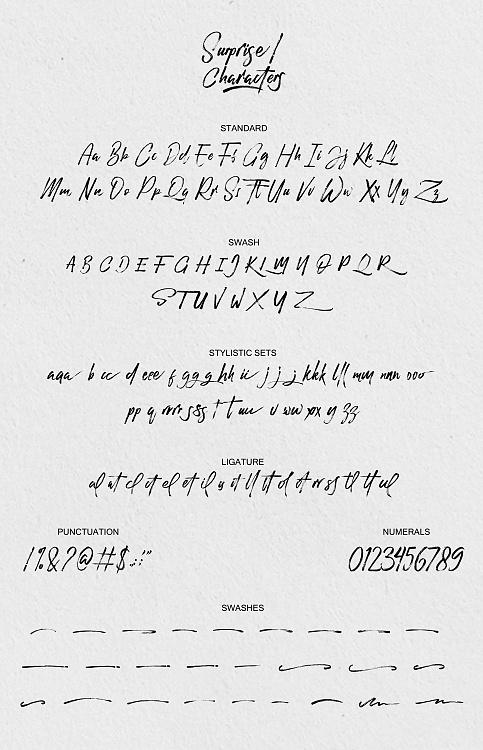 Surprise!
Characters
STANDARD
Aa Bb Cc Dd Ee Ff Gg Hh Ii Jj Kk Ll
Mm Nn Oo Pp Qq Rr Ss Tt Uu Vv Ww Xx Yy Zz
SWASH
A B C D E F G H I J K L M N O P Q R
S T U V W X Y Z
STYLISTIC SETS
aaa b cc d eee f ggg hh ii j j j kkk lll mm nnn ooo
pp q rrrr sss t t uu v ww xx y zz
LIGATURE
PUNCTUATION
NUMERALS
!%&?@#$.,:;'"
0123456789
SWASHES